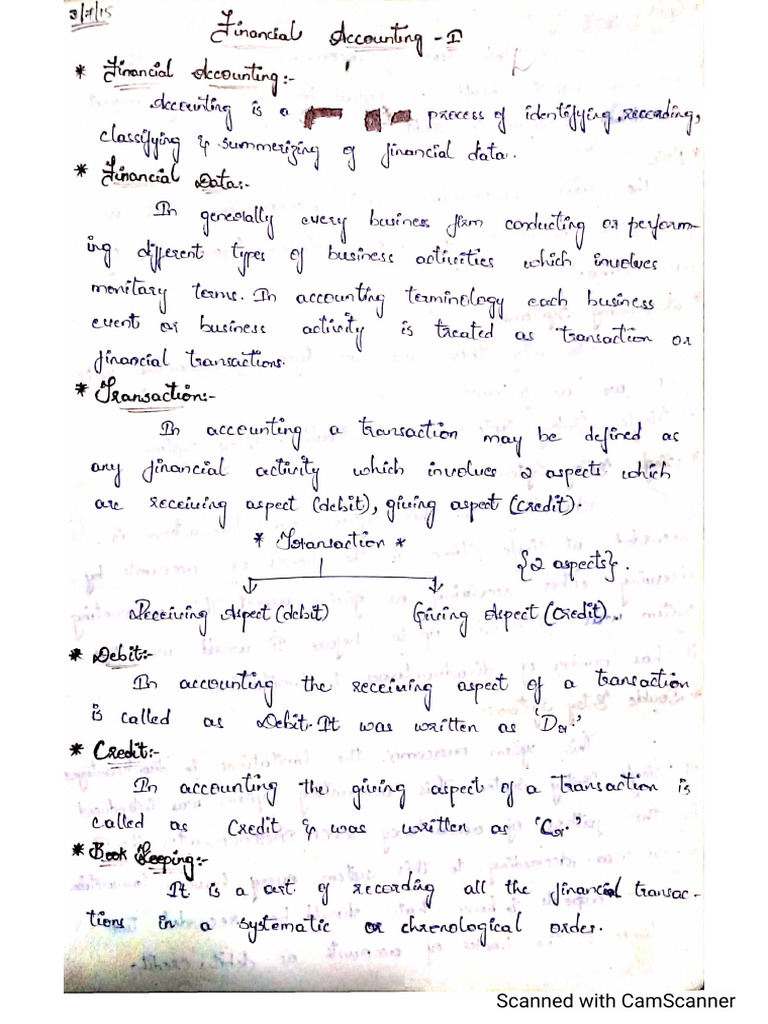 3/7/15
Financial Accounting - I
* Financial Accounting:-
Accounting is a process of identifying, recording,
classifying & summerizing of financial data.
* Financial Data:-
In generally every business firm conducting or perform-
ing different types of business activities which involves
monitary terms. In accounting terminology each business
event or business activity is treated as transaction or
financial transactions.
* Transaction:-
In accounting a transaction may be defined as
any financial activity which involves 2 aspects which
are receiving aspect (debit), giving aspect (credit).
* Transaction *
{2 aspects}.
Receiving Aspect (debit) Giving Aspect (Credit).
* Debit:-
In accounting the receiving aspect of a transaction
is called as Debit. It was written as 'Dr.'
* Credit:-
In accounting the giving aspect of a transaction is
called as Credit & was written as 'Cr.'
* Book Keeping:-
It is a art of recording all the financial transac-
tions in a systematic or chronological order.
Scanned with CamScanner